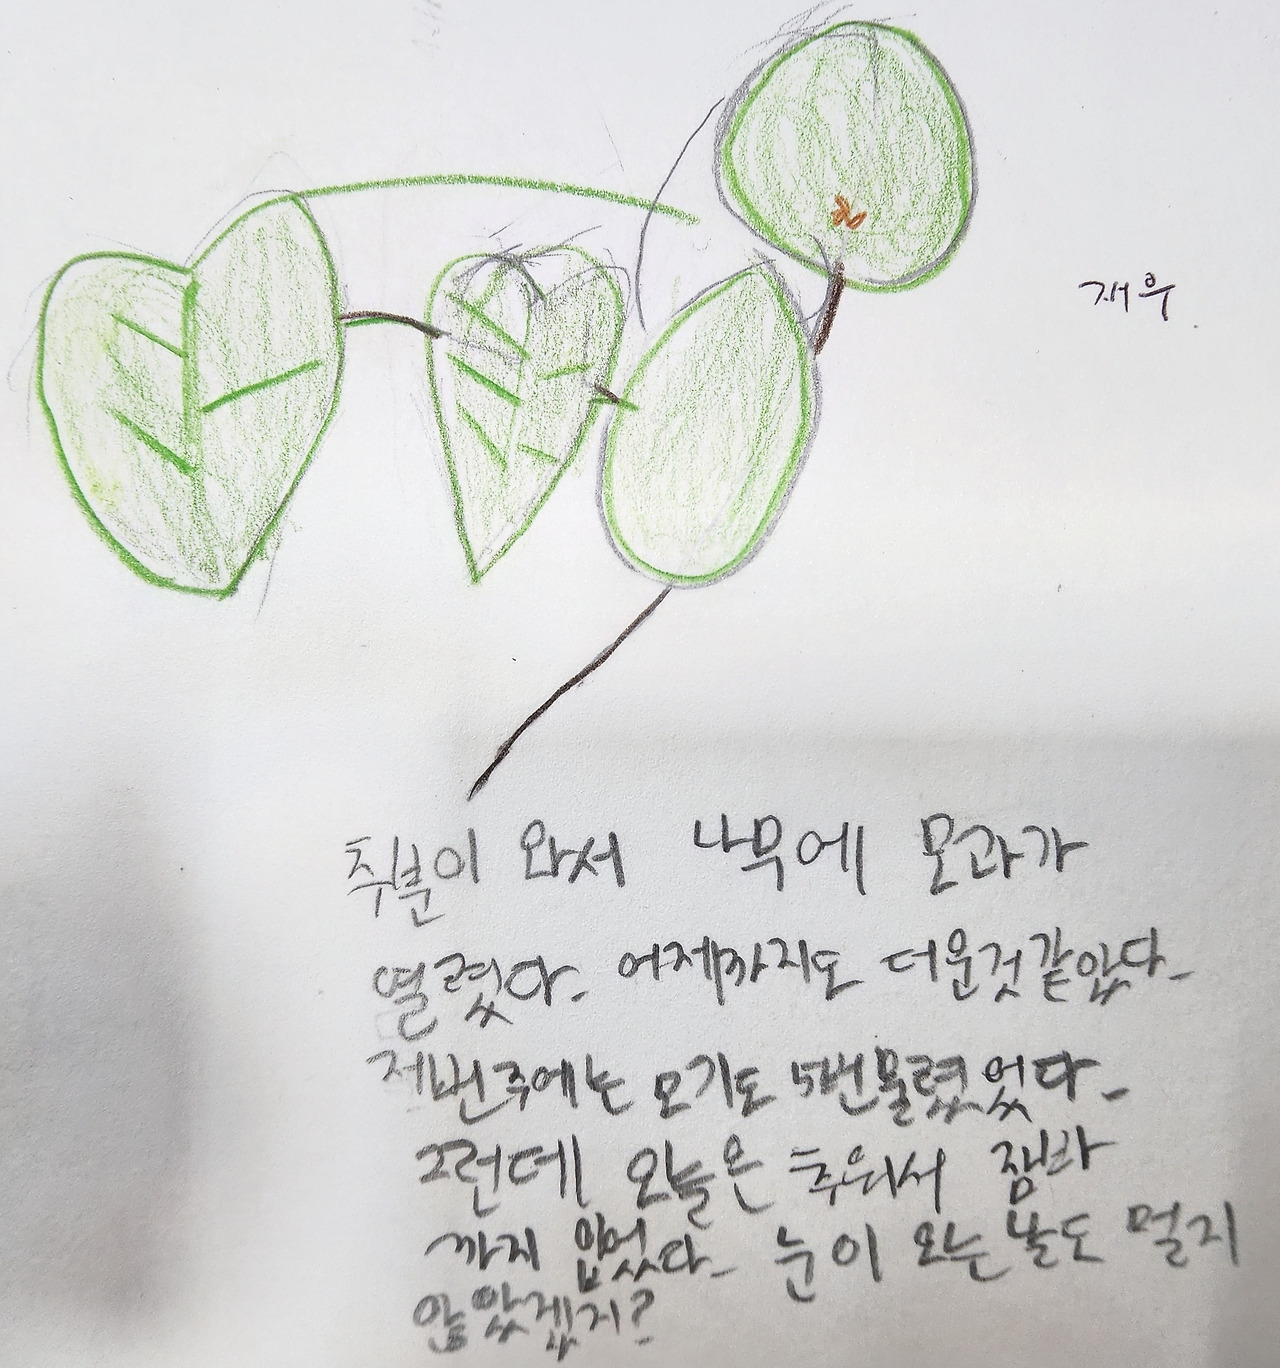 재우
추분이 와서 나무에 모과가
열렸다. 어제까지도 더운것같았다.
저번주에는 모기도 5번물렸었다.
그런데 오늘은 추워서 잠바
까지 입었다. 눈이 오는날도 멀지
않았겠지?